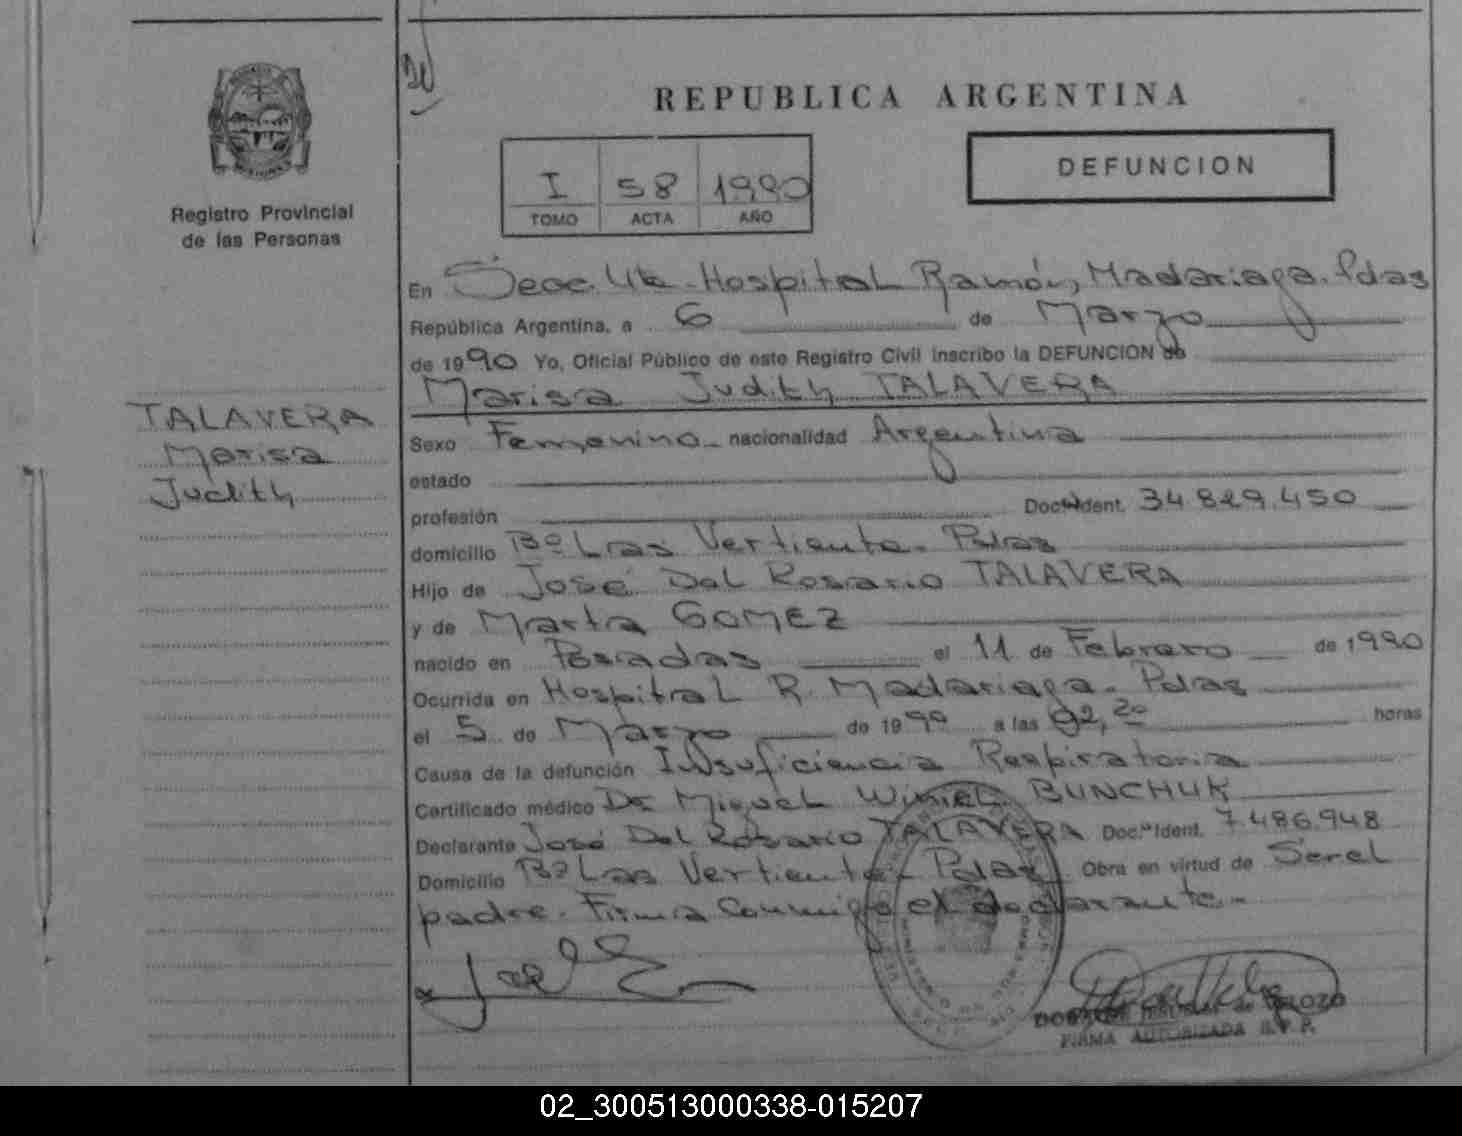 REPUBLICA ARGENTINA
DEFUNCION
I 58 1990
TOMO ACTA AÑO
Registro Provincial
de las Personas
TALAVERA
Marisa
Judith
En Secc. 4ta. Hospital Ramón Madariaga. Pdas
República Argentina, a 6 de Marzo
de 1990 Yo, Oficial Público de este Registro Civil inscribo la DEFUNCION de
Marisa Judith TALAVERA
Sexo Femenino nacionalidad Argentina
estado
profesión Doc. Ident. 34.829.450
domicilio Bº Las Vertiente. Pdas
Hijo de José Del Rosario TALAVERA
y de Marta GOMEZ
nacido en Posadas el 11 de Febrero de 1990
Ocurrida en Hospital R. Madariaga. Pdas
el 5 de Marzo de 1990 a las 02,20 horas
Causa de la defunción Insuficiencia Respiratoria
Certificado médico Dr Miguel BUNCHUK
Declarante José Del Rosario TALAVERA Doc.º Ident. 7.486.948
Domicilio Bº Las Vertiente. Pdas Obra en virtud de Ser el
padre. Firma Conmigo el declarante.
FIRMA AUTORIZADA R.P.P.
02_300513000338-015207